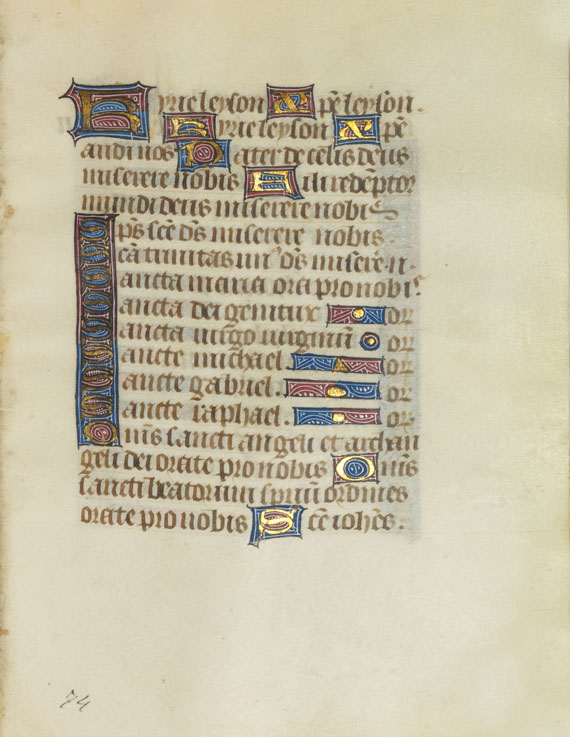 Kyrieleyson Xpeleyson.
Kyrieleyson Xpe
audi nos Pater de celis deus
miserere nobis Fili redemptor
mundi deus miserere nobis
Sps sce ds miserere nobis.
Sca trinitas un' ds misere. n.
Sancta maria ora pro nobis
Sancta dei genitrix or
Sancta virgo virginu or
Sancte michael. or
Sancte gabriel. or
Sancte raphael. or
Omis sancti angeli et archan
geli dei orate pro nobis Omis
sancti beatorum spirituu ordines
orate pro nobis Sce iohes.
74